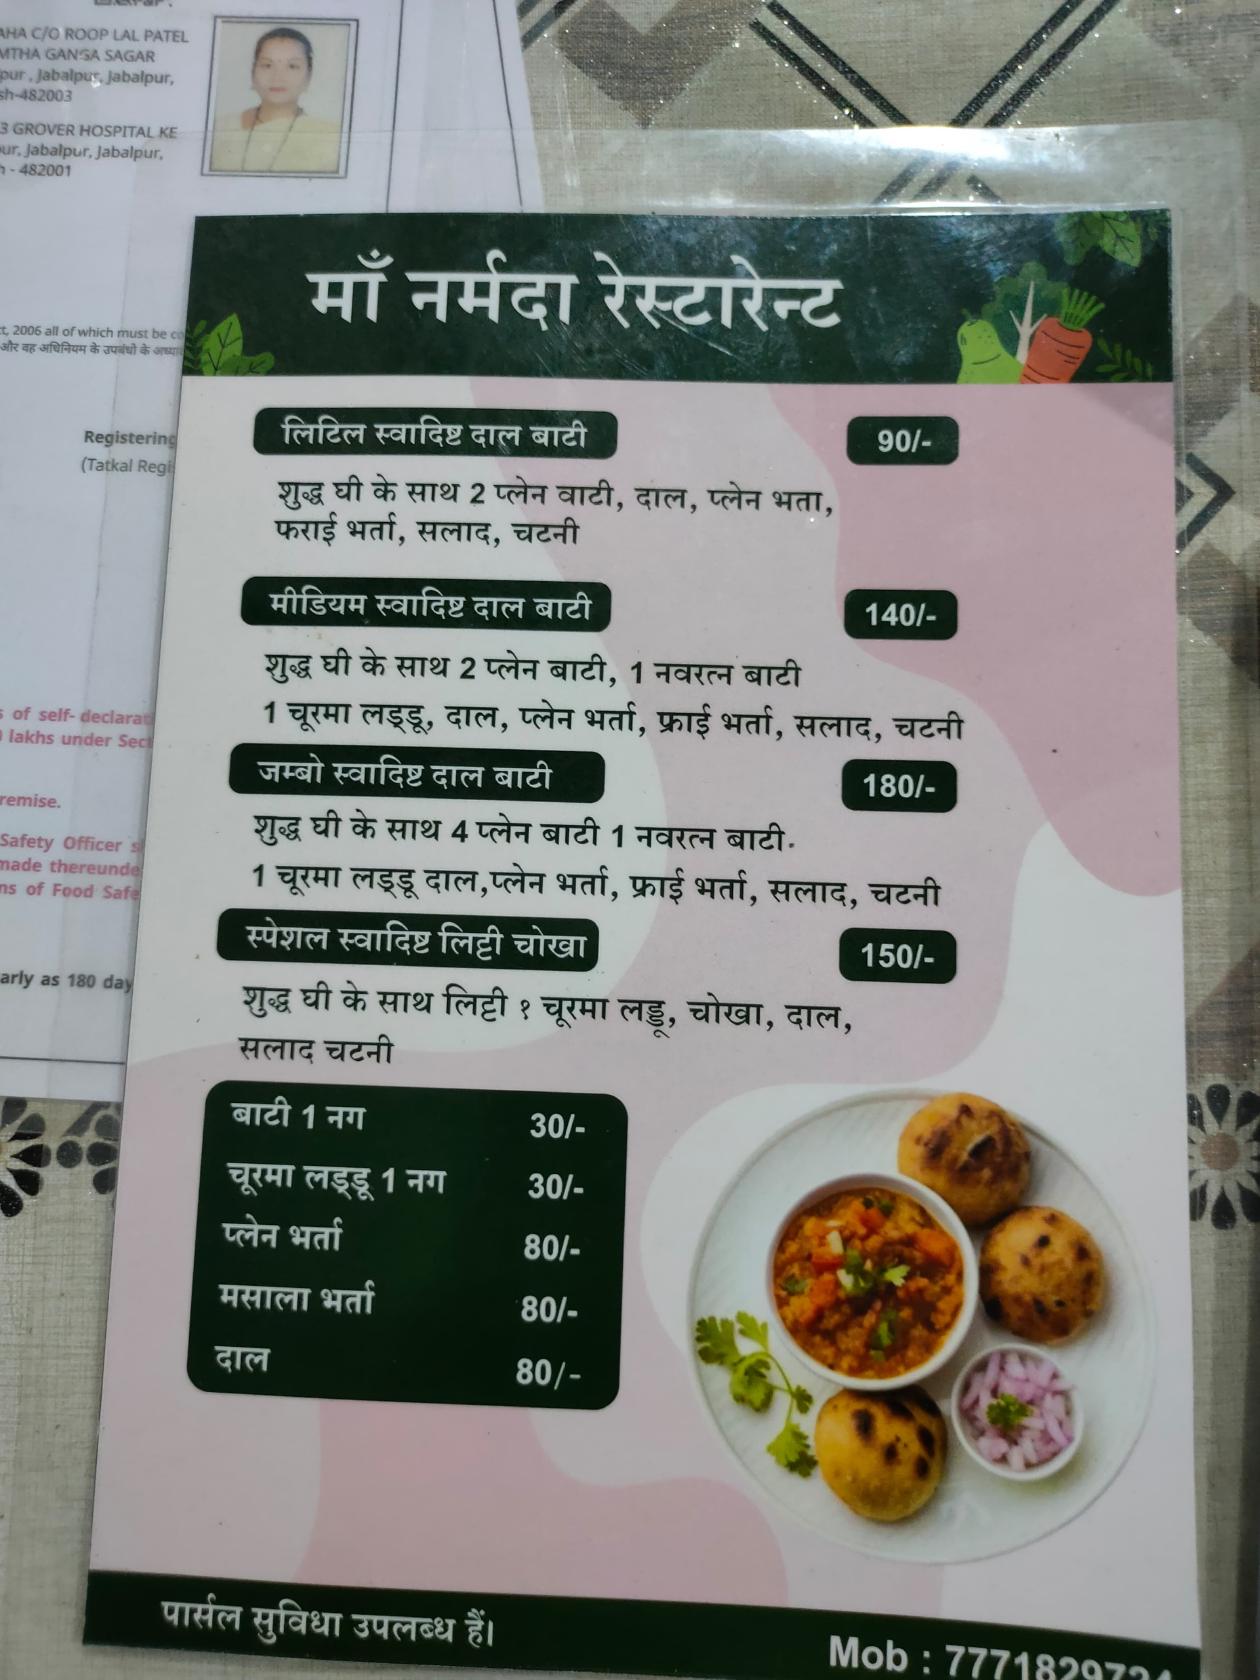 AHA C/O ROOP LAL PATEL
MTHA GANGA SAGAR
pur , Jabalpur, Jabalpur,
sh-482003
3 GROVER HOSPITAL KE
ur, Jabalpur, Jabalpur,
h - 482001
t, 2006 all of which must be
और वह अधिनियम के उपबंधों के
Registering
(Tatkal Regi
s of self- declarat
lakhs under Sect
remise.
Safety Officer
made thereunde
ns of Food Safe
arly as 180 day
माँ नर्मदा रेस्टारेन्ट
लिटिल स्वादिष्ट दाल बाटी 90/-
शुद्ध घी के साथ 2 प्लेन वाटी, दाल, प्लेन भता,
फराई भर्ता, सलाद, चटनी
मीडियम स्वादिष्ट दाल बाटी 140/-
शुद्ध घी के साथ 2 प्लेन बाटी, 1 नवरत्न बाटी
1 चूरमा लड्डू, दाल, प्लेन भर्ता, फ्राई भर्ता, सलाद, चटनी
जम्बो स्वादिष्ट दाल बाटी 180/-
शुद्ध घी के साथ 4 प्लेन बाटी 1 नवरत्न बाटी.
1 चूरमा लड्डू दाल,प्लेन भर्ता, फ्राई भर्ता, सलाद, चटनी
स्पेशल स्वादिष्ट लिट्टी चोखा 150/-
शुद्ध घी के साथ लिट्टी १ चूरमा लड्डू, चोखा, दाल,
सलाद चटनी
बाटी 1 नग 30/-
चूरमा लड्डू 1 नग 30/-
प्लेन भर्ता 80/-
मसाला भर्ता 80/-
दाल 80/-
पार्सल सुविधा उपलब्ध हैं।
Mob : 777182972